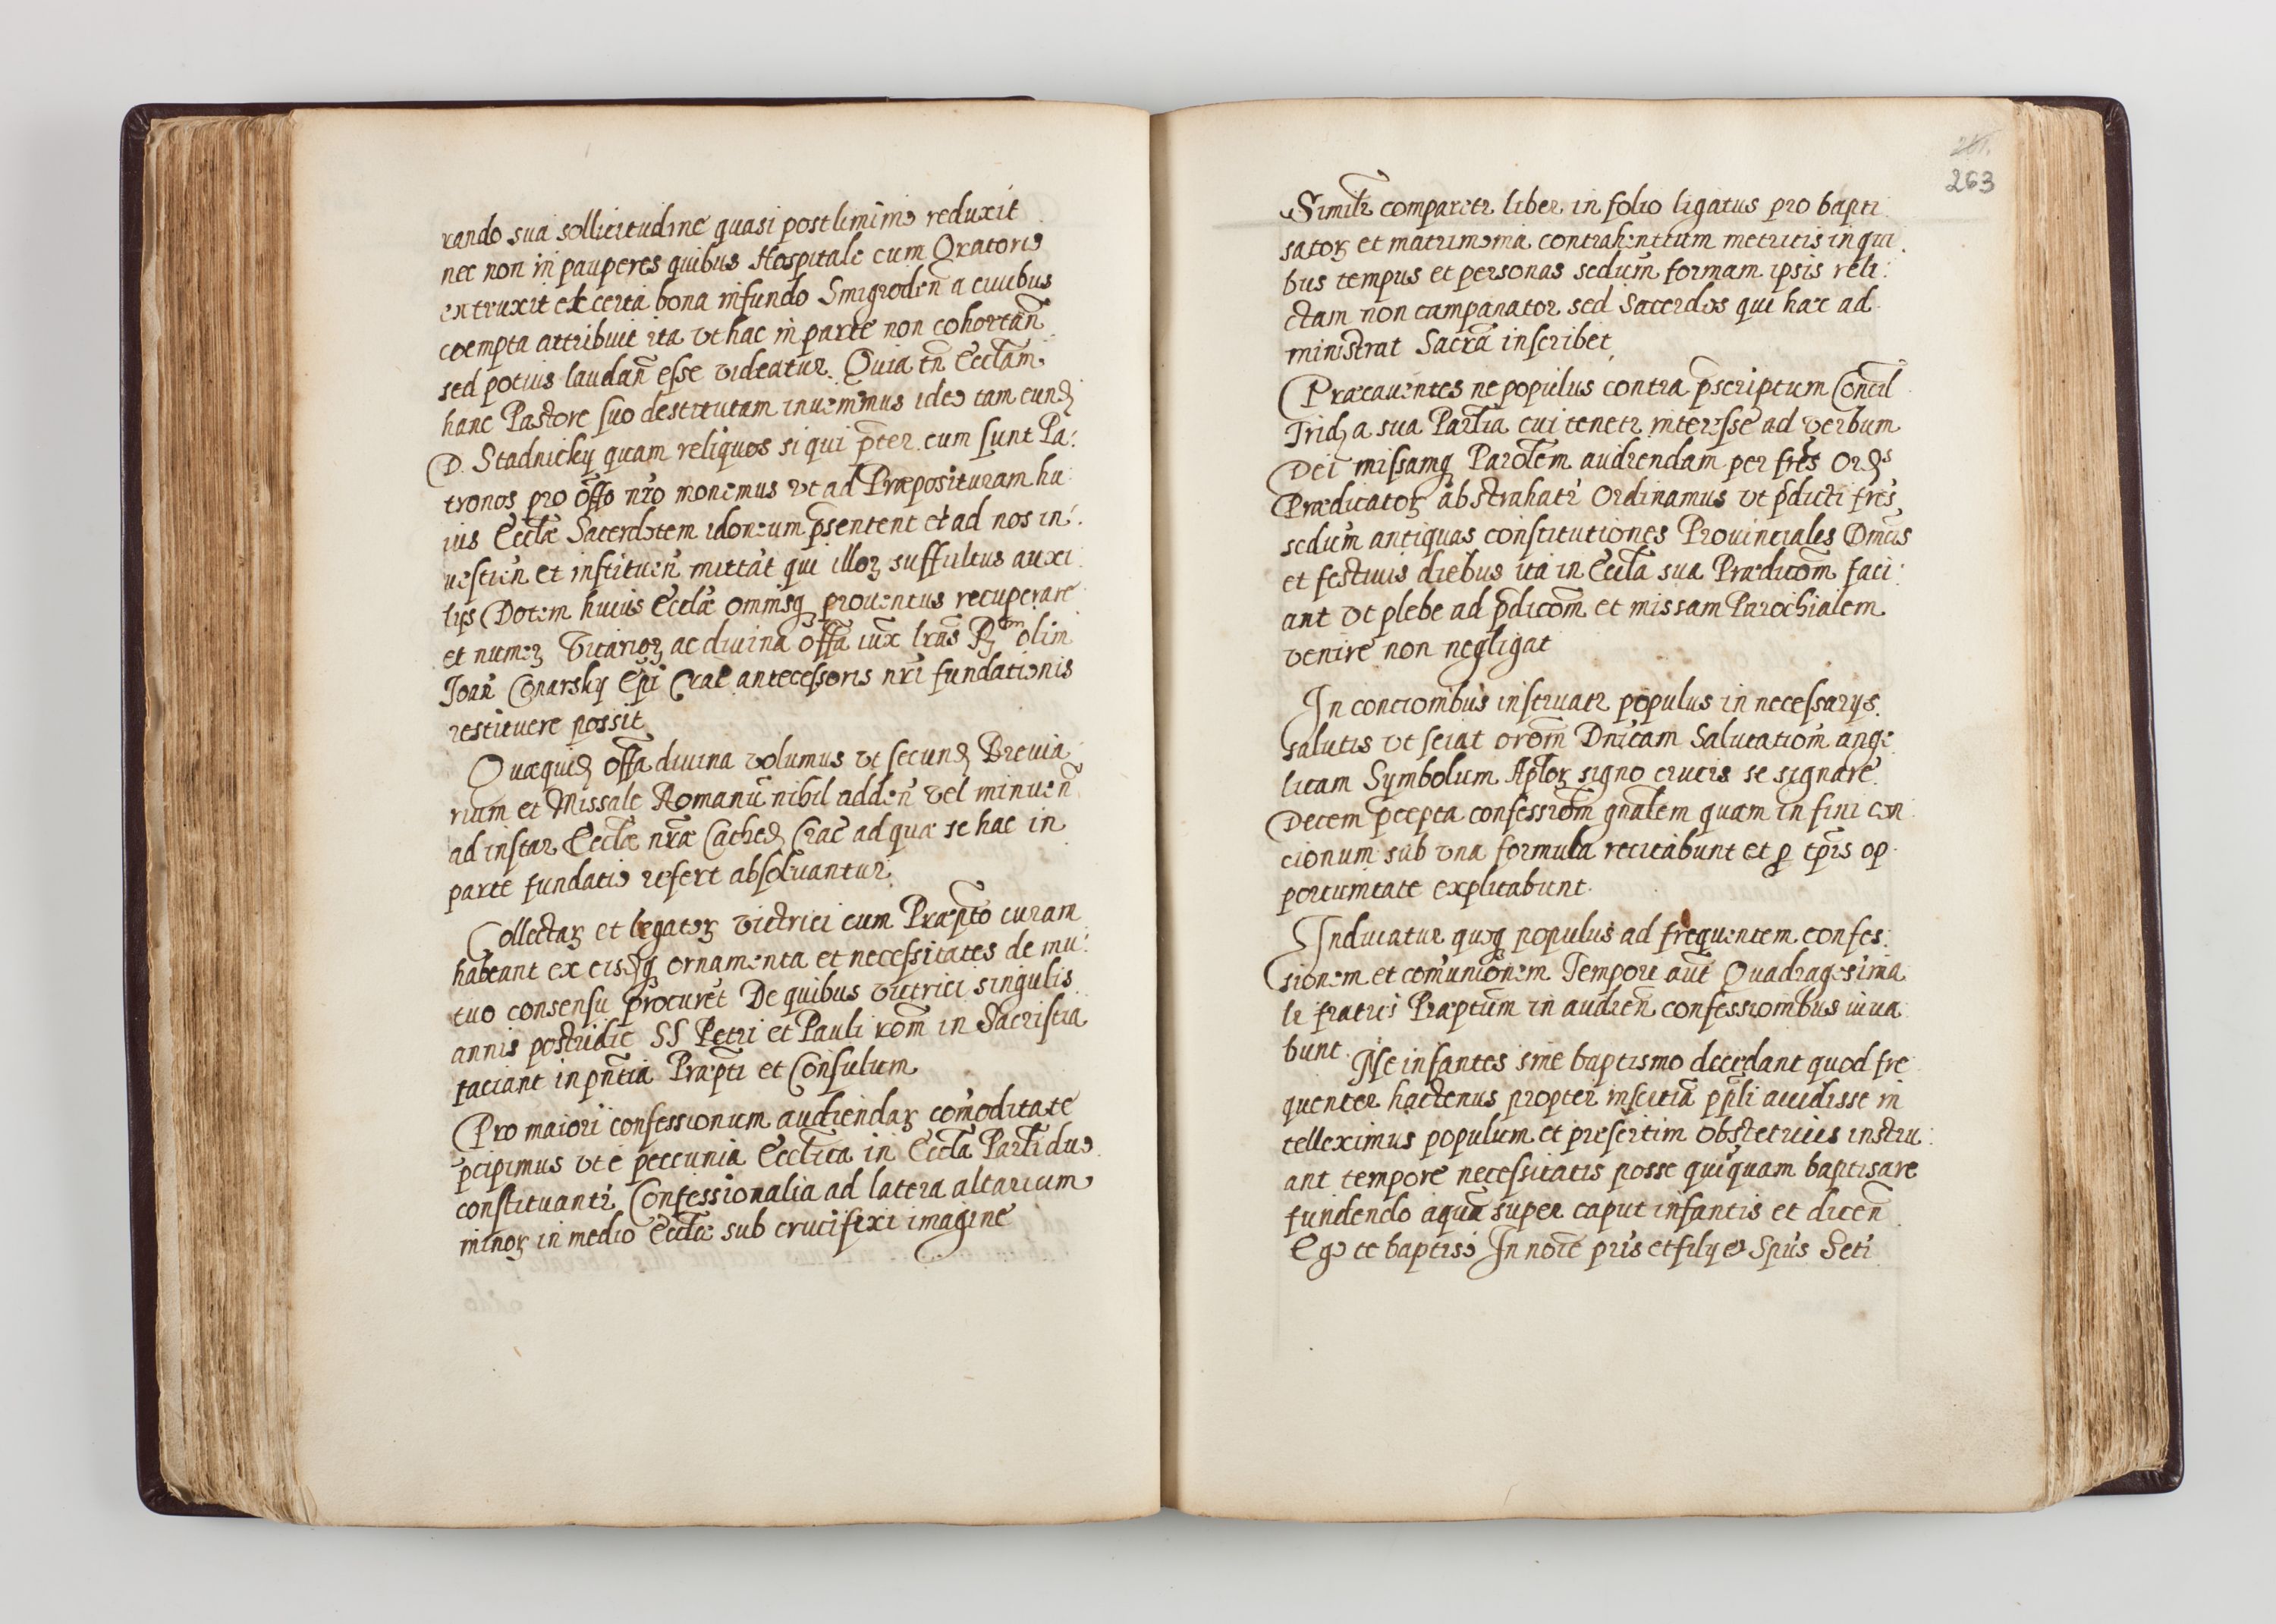 rando sua sollicitudine quasi postliminio reduxit
nec non in pauperes quibus Hospitale cum Oratorio
extruxit et certa bona in fundo Smigroden̄ a ciuibus
coempta attribuit ita vt hac in parte non cohortan̄
sed potius laudan̄ esse videatur. Quia tn̄ Eccl̄am
hanc Pastore suo destitutam inuenimus ideo tam eund̨
D. Stadnicky quam reliquos si qui p̄ter eum sunt Pa:
tronos pro off̄o nr̄o monemus vt ad Præposituram hu
ius Eccl̄æ Sacerdotem idoneum p̄sentent et ad nos in:
uestien̄ et instituen̄ mittat qui illoꝝ suffultus auxi
lijs Dotem huius Eccl̄æ omnesq̨ prouentus recuperare
et numeꝝ Vicarioꝝ ac diuina off̄a iux̄ lr̄as R̨ᵐ olim
Joan̄ Conarsky Ep̄i Crac̄ antecessoris nr̄i fundationis
restituere possit
Quæquid̨ off̄a diuina volumus vt secund̨ Breuia
rium et Missale Romanū nihil adden̄ vel minuen̄
ad instar Eccl̄æ nr̄æ Cathed̨ Crac̄ ad quæ se hac in
parte fundatio refert absoluantur.
Collectaꝝ et legatoꝝ victrici cum Præp̄to curam
habeant ex eisd̨q̨ ornamenta et necessitates de mu:
tuo consensu procuret De quibus victrici singulis
annis postridie SS Petri et Pauli rōm in Sacristia
faciant in pn̄tia Præp̄ti et Consulum
Pro maiori confessionum audiendaꝝ com̄oditate
p̄cipimus vt è peccunia Eccl̄ica in Eccl̄a Parl̄i duo
constituantr̄ Confessionalia ad latera altarium
minoꝝ in medio Eccl̄æ sub crucifixi imagine
261.
263
Simil̄r comparetr liber in folio ligatus pro bapti
satoꝝ et matrimonia contrahentium metricis in qui
bus tempus et personas secdum̄ formam ipsis reli:
ctam non campanator sed Sacerdos qui hæc ad
ministrat Sacrā inscribet
Præcauentes ne populus contra p̄scriptum Concil
Trid̨ a sua Parl̄ia cui tenetr interesse ad verbum
Dei missamq̨ Parol̄em audiendam per frēs Ord̨ˢ
Prædicatoꝝ abstrahatr̄ Ordinamus vt p̄dicti frēs
secdum̄ antiquas constitutiones Prouinciales Dnīcis
et festiuis diebus ita in Eccl̄a sua Prædicōm faci:
ant vt plebe ad p̄dicōm et missam Parochialem
venire non negligat
In concionibus instruatr populus in necessarijs
salutis vt sciat orōm Dn̄icam Salutatiōm ange
licam Symbolum Ap̄loꝝ signo crucis se signare
Decem p̄cepta confessiōm gn̄alem quam in fini con
cionum sub vna formula recitabunt et ꝓ tp̄ris op
portunitate explicabunt.
Inducatur quoq̨ populus ad frequentem confes:
sionem et com̄unionem Tempore aut̄ Quadragesima
li fratres Præp̄tum in audien̄ confessionibus iuua
bunt. Ne infantes sine baptismo decedant quod fre
quenter hactenus propter inscitiā pp̄li accidisse in
telleximus populum et presertim obstetrices instru:
ant tempore necessitatis posse quēquam baptisare
fundendo aquā super caput infantis et dicen̄
Ego te baptiso In noīe pr̄is et filij et Spūs Scti